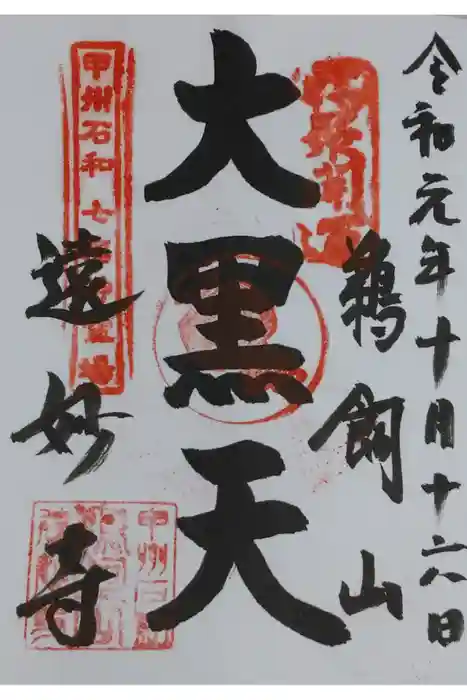 令和元年十月十六日
鵜飼山
大黒天
甲州石和七
霊場
遠妙寺
甲州石